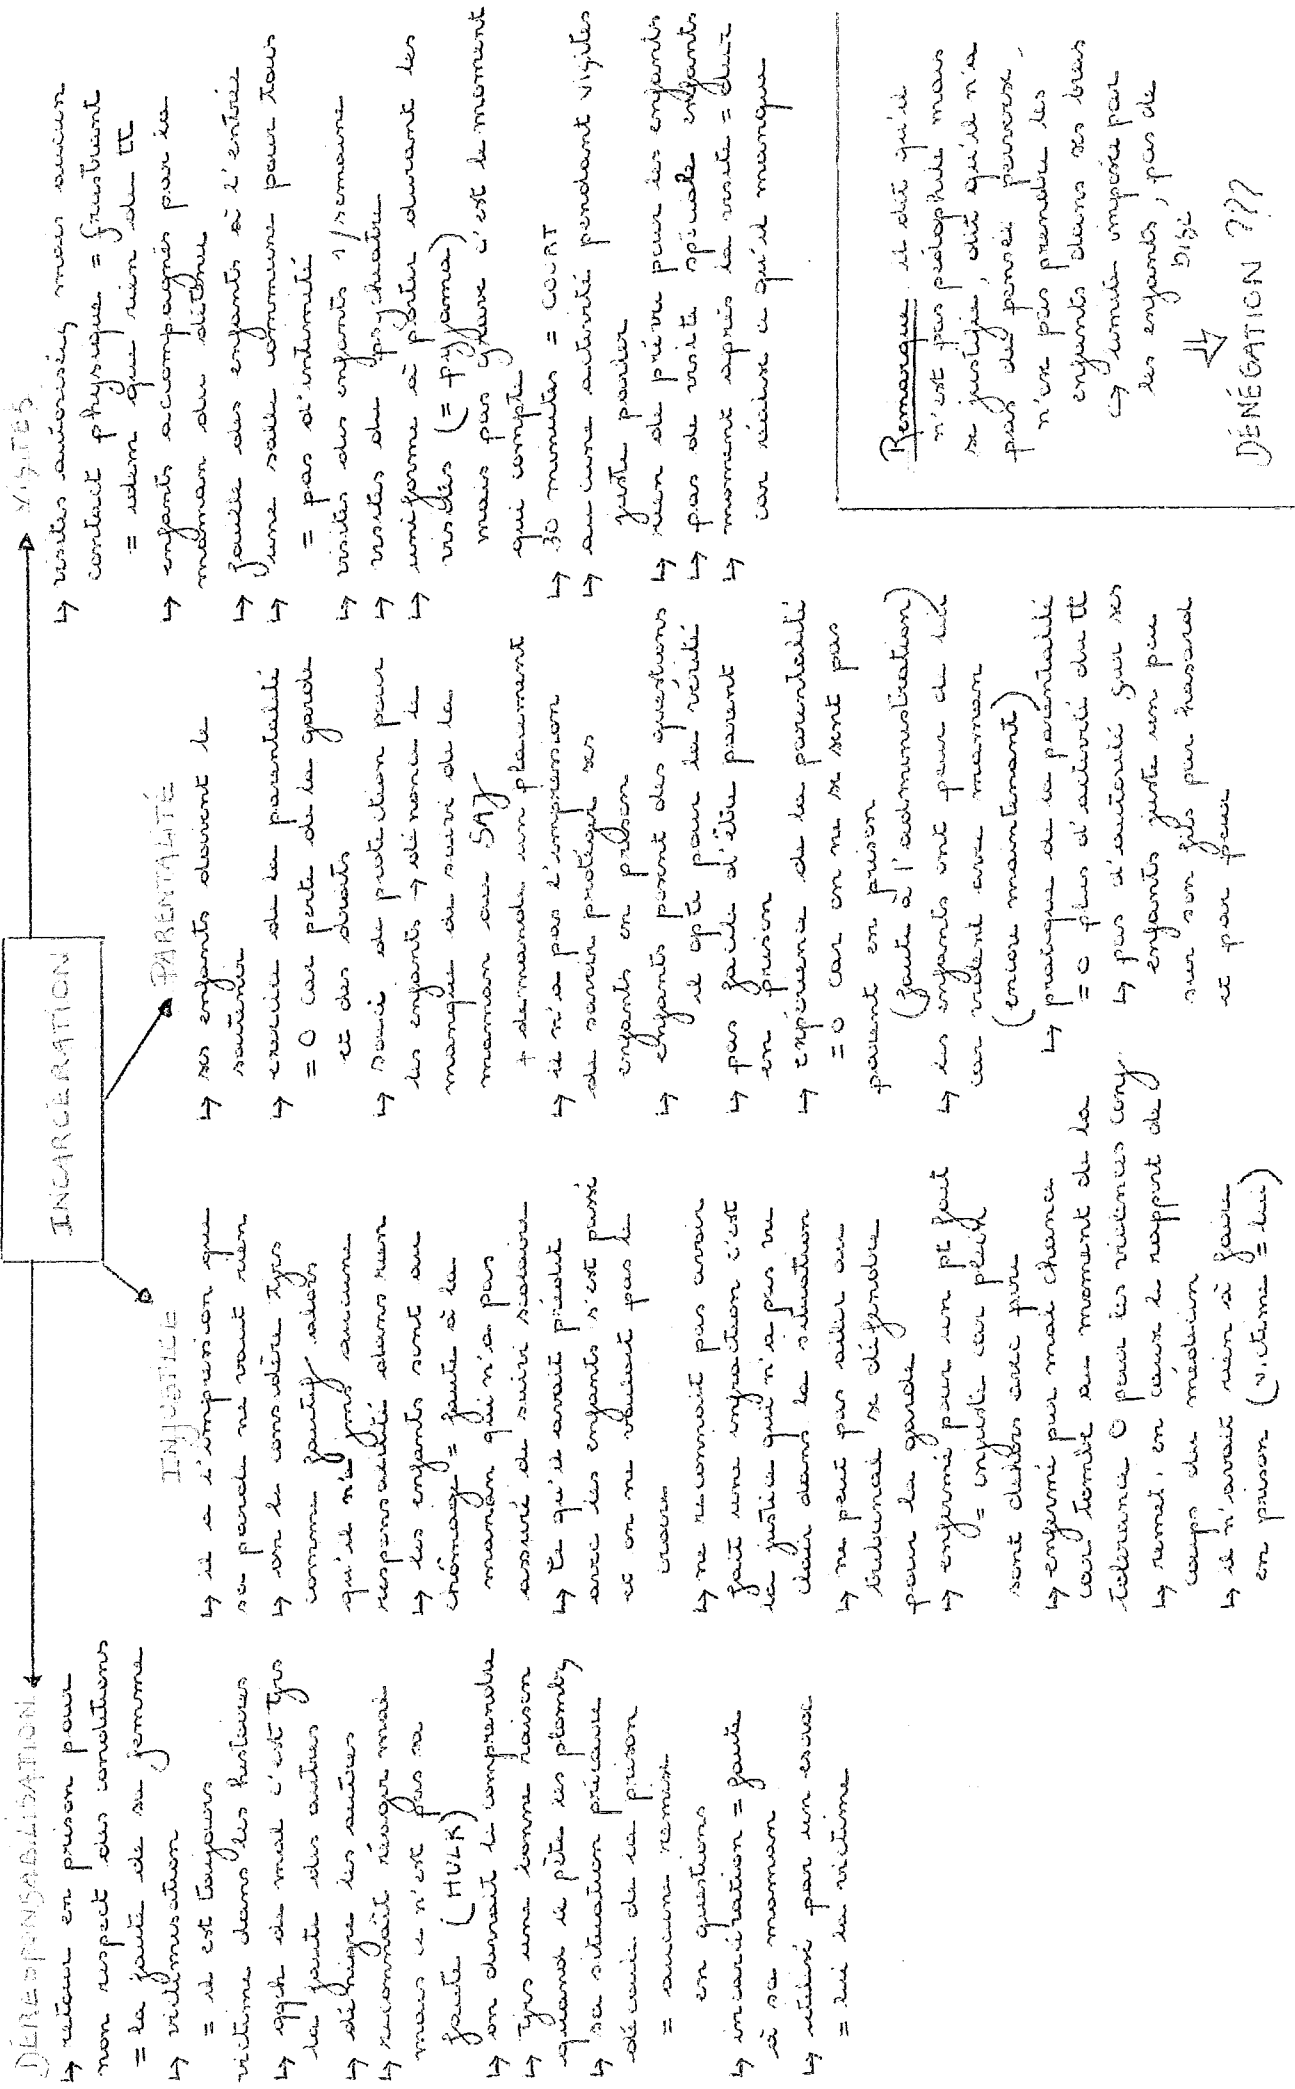 INCARCÉRATION
DÉRESPONSABILISATION
↳ retour en prison pour
non respect des conditions
= la faute de sa femme
↳ victimisation
= il est toujours
victime dans les histoires
↳ qqch de mal c'est tjrs
la faute des autres
↳ dénigre les autres
↳ reconnaît réagir mal
mais ce n'est pas sa
faute (HULK)
↳ on devrait le comprendre
↳ tjrs une bonne raison
quand il pète les plombs
↳ sa situation précaire
découle de la prison
= aucune remise
en question
↳ incarcération = faute
à sa maman
↳ utilisé par un escroc
= lui la victime
INJUSTICE
↳ il a l'impression que
sa parole ne vaut rien
↳ on le considère tjrs
comme fautif alors
qu'il n'a jms aucune
responsabilité dans rien
↳ les enfants sont au
chômage = faute à la
maman qui n'a pas
assuré de suivi scolaire
↳ tt ce qu'il avait prédit
avec les enfants s'est passé
et on ne voulait pas le
croire
↳ ne reconnait pas avoir
fait une infraction c'est
la justice qui n'a pas vu
clair dans la situation
↳ ne peut pas aller au
tribunal se défendre
pour la garde
↳ enfermé pour un pt fait
= injuste car
sont dehors avec pire
↳ enfermé par mal chance
car tombé au moment de la
tolérance 0 pour les violences conj.
↳ remet en cause le rapport de
coups du médecin
↳ il n'avait rien à faire
en prison (victime = lui)
PARENTALITÉ
↳ ses enfants doivent le
soutenir
↳ exercice de la parentalité
= 0 car perte de la garde
et des droits
↳ souci de protection pour
les enfants → dénonce le
manque de suivi de la
maman au SAJ
+ demande un placement
↳ il n'a pas l'impression
de savoir protéger ses
enfants en prison
↳ enfants posent des questions
il opte pour la vérité
↳ pas facile d'être parent
en prison
↳ expérience de la parentalité
= 0 car on ne se sent pas
parent en prison
(faute à l'administration)
↳ les enfants ont peur de lui
car violent avec maman
(encore maintenant)
↳ pratique de la parentalité
= 0 plus d'activité du tt
↳ pas d'autorité sur ses
enfants juste un peu
sur son fils par hasard
et par peur
VISITES
↳ visites autorisées mais aucun
contact physique = frustrant
= idem que rien du tt
↳ enfants accompagnés par la
maman du détenu
↳ fouille des enfants à l'entrée
↳ une salle commune pour tous
= pas d'intimité
↳ visites des enfants 1/semaine
↳ visites du psychiatre
↳ uniforme à porter durant les
visites (= pyjama)
mais pas grave c'est le moment
qui compte
↳ 30 minutes = COURT
↳ aucune activité pendant visites
juste parler
↳ rien de prévu pour les enfants
↳ pas de visite spéciale enfants
↳ moment après la visite = dur
car réalise ce qu'il manque
Remarque : il dit qu'il
n'est pas pédophile mais
se justifie, dit qu'il n'a
pas de pensée perverse,
n'ose pas prendre les
enfants dans ses bras
↳ limite imposée par
les enfants, pas de
bisc
⇓
DÉNÉGATION ???